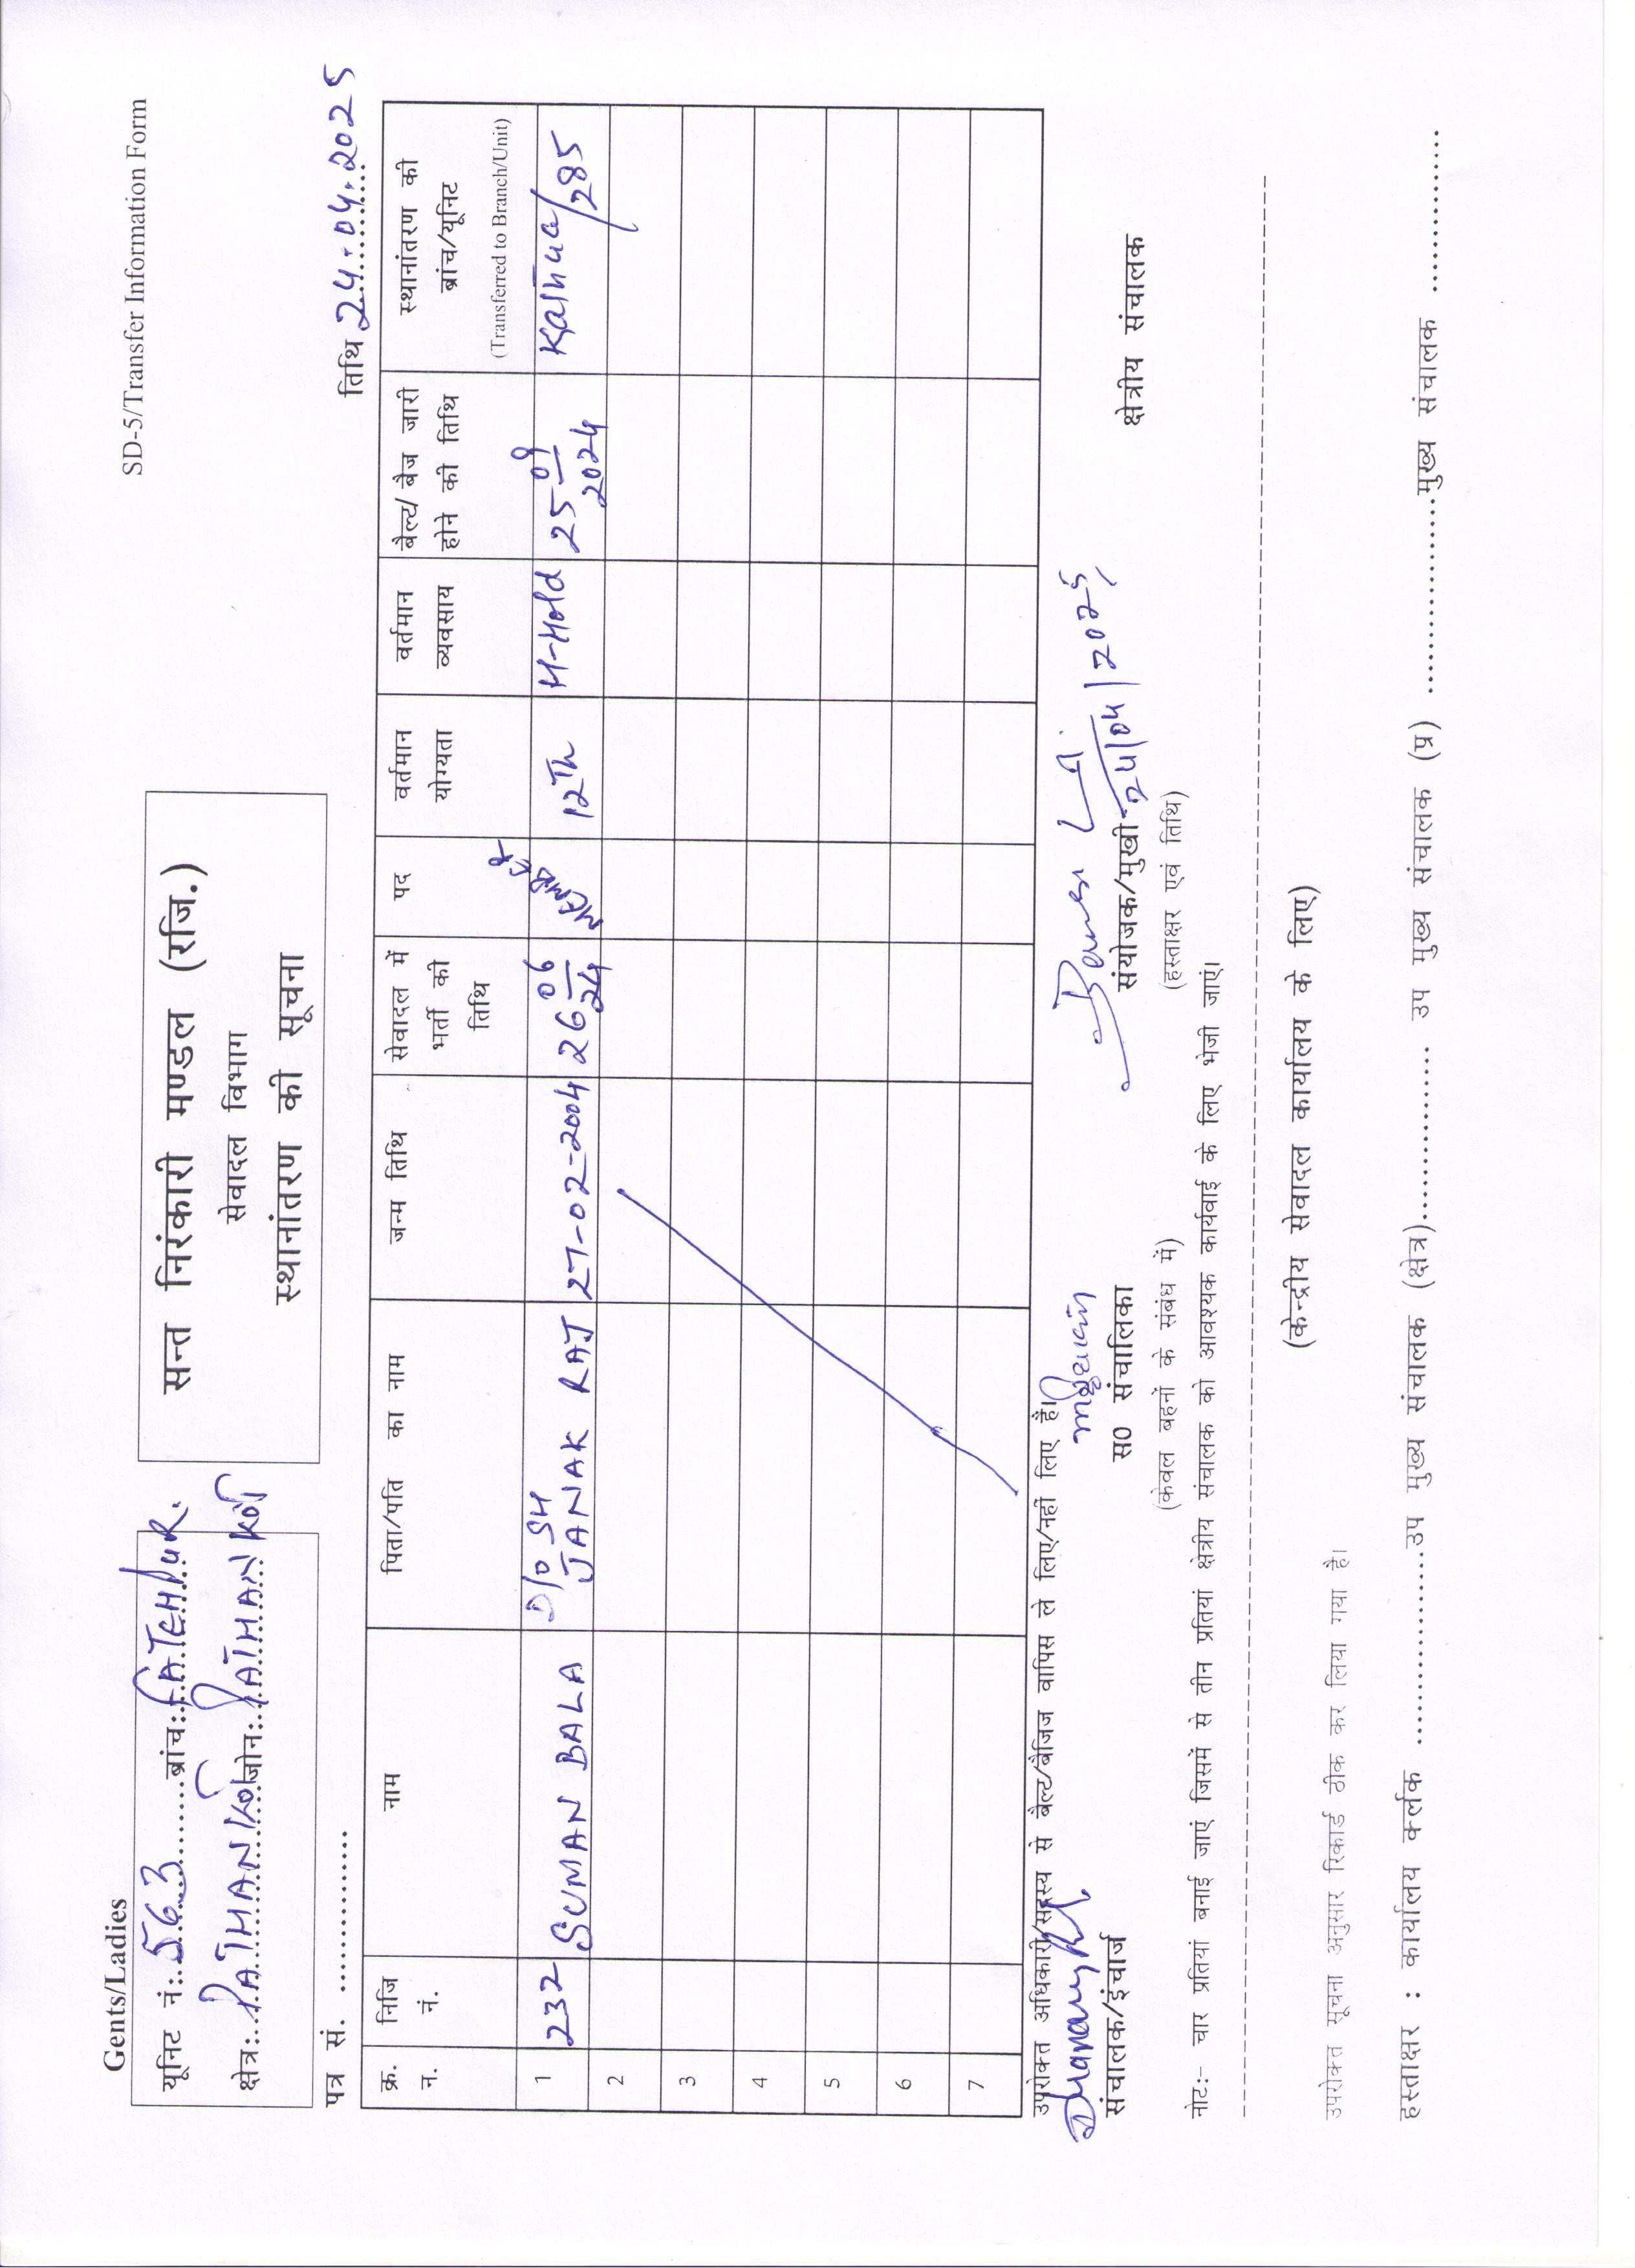 SD-5/Transfer Information Form
Gents/Ladies
यूनिट नं:..563.........ब्रांच:..FATEHPUR.
क्षेत्र:..PATHANKOT जोन:..PATHANKOT
सन्त निरंकारी मण्डल (रजि.)
सेवादल विभाग
स्थानांतरण की सूचना
पत्र सं. ................
तिथि 24.04.2025
क्र. न. निजि नं. नाम पिता/पति का नाम जन्म तिथि सेवादल में भर्ती की तिथि पद वर्तमान योग्यता वर्तमान व्यवसाय बैल्ट/ बैज जारी होने की तिथि स्थानांतरण की ब्रांच/यूनिट (Transferred to Branch/Unit)
1 232 SUMAN BALA D/O SH JANAK RAJ 27-02-2004 26 06 24 12Th H-Hold 25 09 2024 Kathua/285
2
3
4
5
6
7
उपरोक्त अधिकारी/सदस्य से बैल्ट/बैजिज वापिस ले लिए/नहीं लिए हैं।
24/04/2025
संचालक/इंचार्ज स0 संचालिका संयोजक/मुखी क्षेत्रीय संचालक
(केवल बहनों के संबंध में) (हस्ताक्षर एवं तिथि)
नोट:- चार प्रतियां बनाई जाएं जिसमें से तीन प्रतियां क्षेत्रीय संचालक को आवश्यक कार्यवाई के लिए भेजी जाएं।
(केन्द्रीय सेवादल कार्यालय के लिए)
उपरोक्त सूचना अनुसार रिकार्ड ठीक कर लिया गया है।
हस्ताक्षर : कार्यालय क्लर्क ...................उप मुख्य संचालक (क्षेत्र)................. उप मुख्य संचालक (प्र) ...................मुख्य संचालक ................